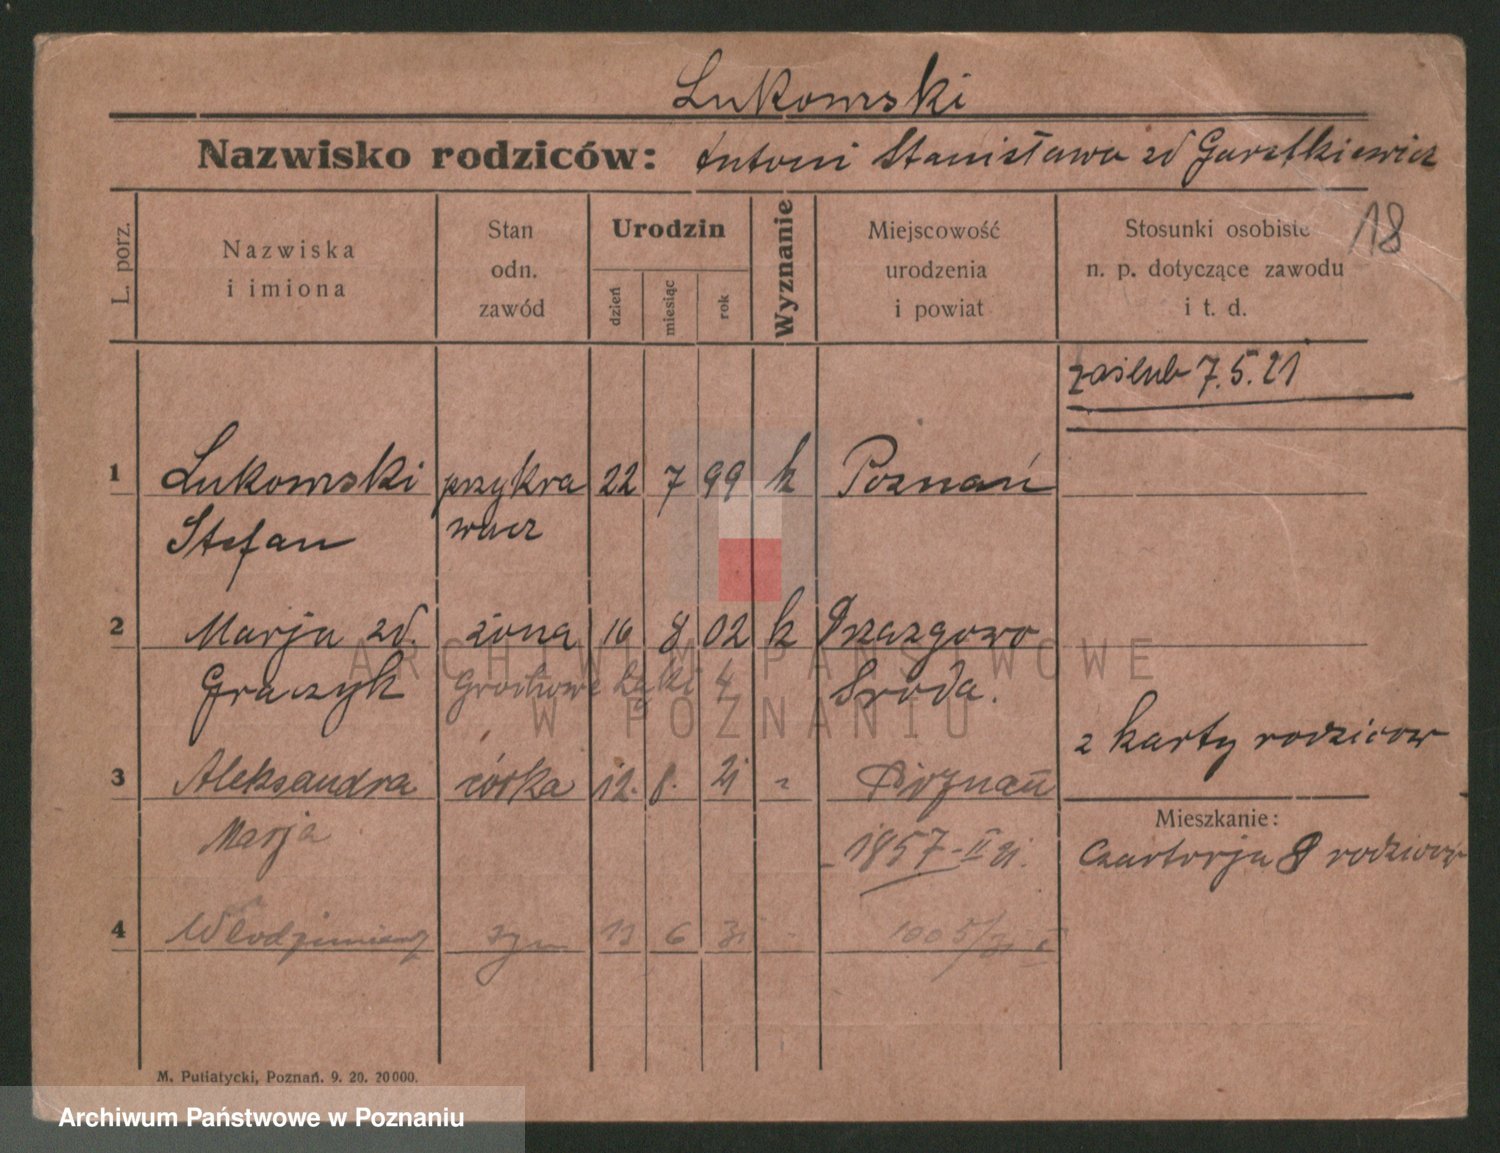 Łukowski
Nazwisko rodziców: Antoni Stanisława zd Garstkiewicz
18
L. porz.
Nazwiska
i imiona
Stan
odn.
zawód
Urodzin
dzień
miesiąc
rok
Wyznanie
Miejscowość
urodzenia
i powiat
Stosunki osobiste
n. p. dotyczące zawodu
i t. d.
zaślub 7.5.21
1 Łukowski przykra 22 7 99 k Poznań
Stefan wacz
2 Marja zd. żona 16 8 02 k
Graczyk Grochowe Łąki 4 Środa.
z karty rodziców
3 Aleksandra córka 12. 8. 21 " Poznań
Mieszkanie:
Marja 1857-II 21.
Czartorja 8 rodziców
4 Włodzimierz syn 13 6 31
M. Putiatycki, Poznań. 9. 20. 20000.
ARCHIWUM PAŃSTWOWE
W POZNANIU
Archiwum Państwowe w Poznaniu